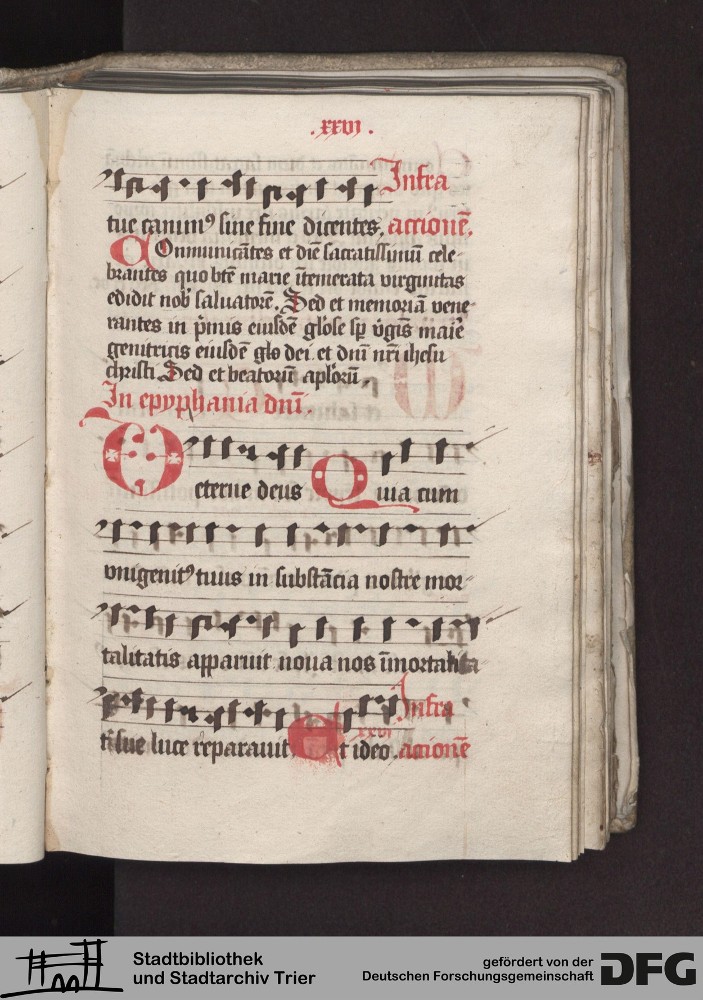 .xxvi.
Infra
tue canim⁹ sine fine dicentes. accionē.
COnmunicātes et diē sacratissimū cele-
brantes quo btē marie ītemerata virginitas
edidit nob̄ saluatorē. Sed et memoriā vene-
rantes in p̄mis eiusdē gl̄ose sp̄ v̄gīs maīe
genitricis eiusdē
dei et dn̄i nr̄i ihesu
christi Sed et beatorū apl̄orū.
In epyphania dn̄i.
eterne deus Quia cum
vnigenit⁹ tuus in substācia nostre mor-
talitatis apparuit noua nos īmortalita
Infra
xxvi
tis sue luce reparauit Et ideo. accionē
Stadtbibliothek
und Stadtarchiv Trier
gefördert von der
Deutschen Forschungsgemeinschaft
DFG